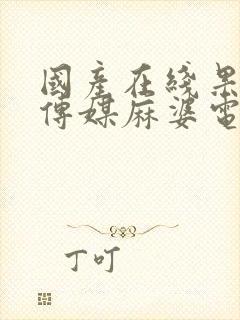 國產在綫果
傳媒麻婆電
丁叮